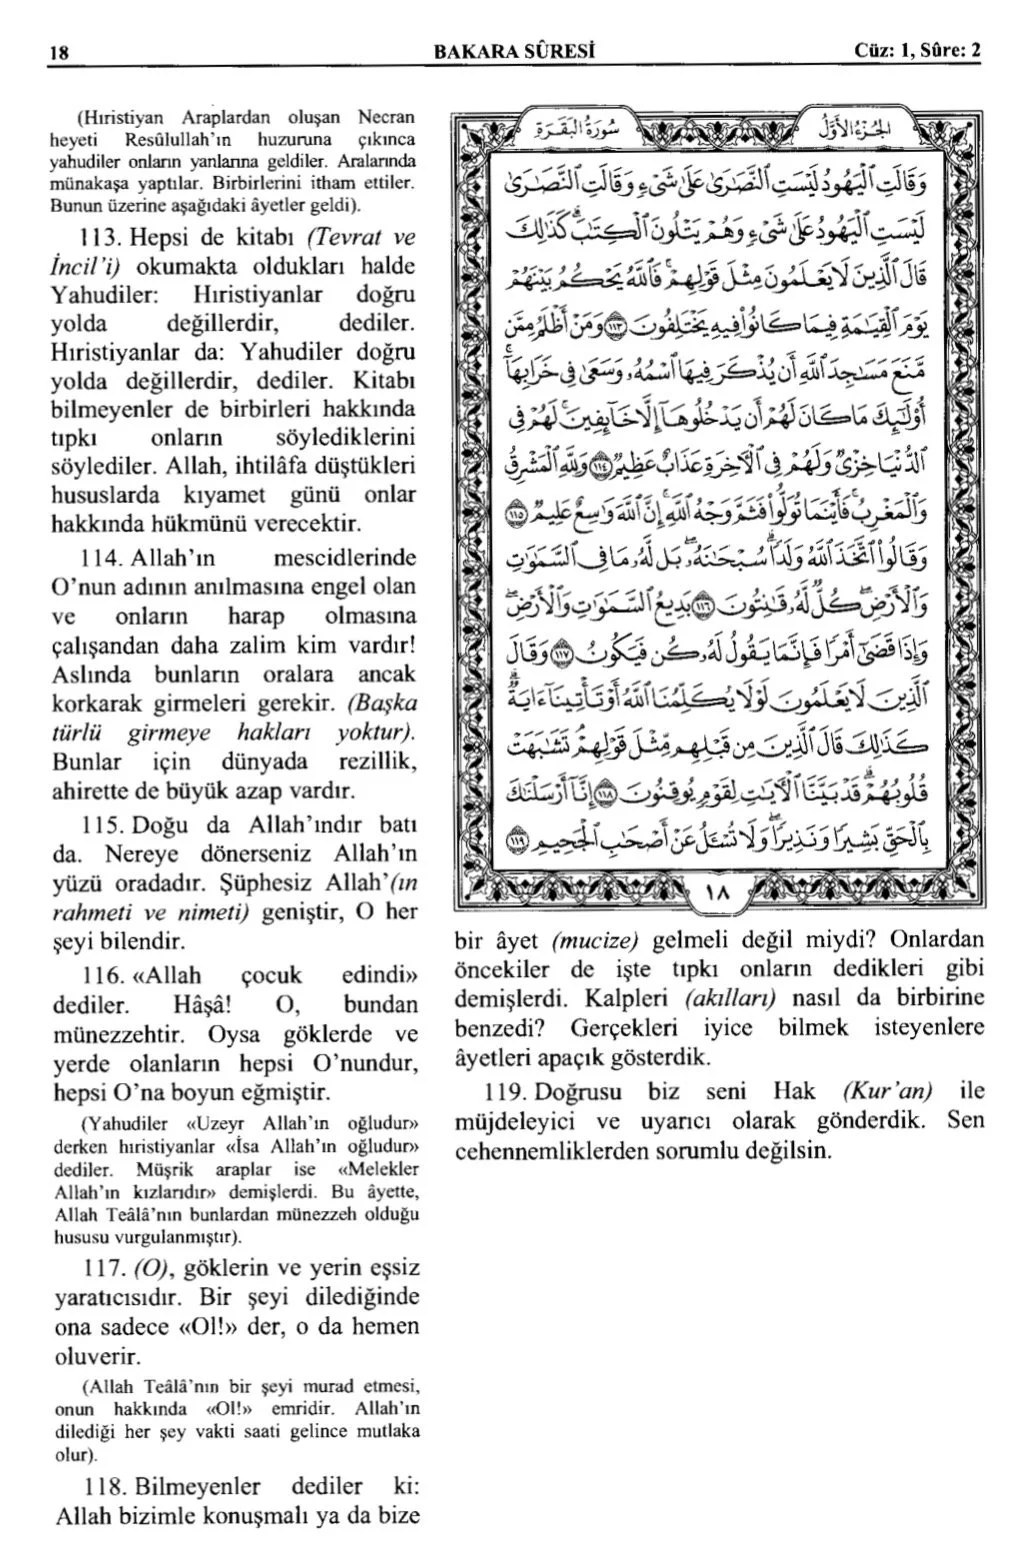 18
BAKARA SÛRESİ
Cüz: 1, Sûre: 2
(Hıristiyan Araplardan oluşan Necran
heyeti Resûlullah’ın huzuruna çıkınca
yahudiler onların yanlarına geldiler. Aralarında
münakaşa yaptılar. Birbirlerini itham ettiler.
Bunun üzerine aşağıdaki âyetler geldi).
113. Hepsi de kitabı (Tevrat ve
İncil’i) okumakta oldukları halde
Yahudiler: Hıristiyanlar doğru
yolda değillerdir, dediler.
Hıristiyanlar da: Yahudiler doğru
yolda değillerdir, dediler. Kitabı
bilmeyenler de birbirleri hakkında
tıpkı onların söylediklerini
söylediler. Allah, ihtilâfa düştükleri
hususlarda kıyamet günü onlar
hakkında hükmünü verecektir.
114. Allah’ın mescidlerinde
O’nun adının anılmasına engel olan
ve onların harap olmasına
çalışandan daha zalim kim vardır!
Aslında bunların oralara ancak
korkarak girmeleri gerekir. (Başka
türlü girmeye hakları yoktur).
Bunlar için dünyada rezillik,
ahirette de büyük azap vardır.
115. Doğu da Allah’ındır batı
da. Nereye dönerseniz Allah’ın
yüzü oradadır. Şüphesiz Allah’(ın
rahmeti ve nimeti) geniştir, O her
şeyi bilendir.
116. «Allah çocuk edindi»
dediler. Hâşâ! O, bundan
münezzehtir. Oysa göklerde ve
yerde olanların hepsi O’nundur,
hepsi O’na boyun eğmiştir.
(Yahudiler «Uzeyr Allah’ın oğludur»
derken hıristiyanlar «İsa Allah’ın oğludur»
dediler. Müşrik araplar ise «Melekler
Allah’ın kızlarıdır» demişlerdi. Bu âyette,
Allah Teâlâ’nın bunlardan münezzeh olduğu
hususu vurgulanmıştır).
117. (O), göklerin ve yerin eşsiz
yaratıcısıdır. Bir şeyi dilediğinde
ona sadece «Ol!» der, o da hemen
oluverir.
(Allah Teâlâ’nın bir şeyi murad etmesi,
onun hakkında «Ol!» emridir. Allah’ın
dilediği her şey vakti saati gelince mutlaka
olur).
118. Bilmeyenler dediler ki:
Allah bizimle konuşmalı ya da bize
الجزء الأول
سورة البقرة
وَقَالَتِ ٱلْيَهُودُ لَيْسَتِ ٱلنَّصَٰرَىٰ عَلَىٰ شَىْءٍ وَقَالَتِ ٱلنَّصَٰرَىٰ
لَيْسَتِ ٱلْيَهُودُ عَلَىٰ شَىْءٍ وَهُمْ يَتْلُونَ ٱلْكِتَٰبَ ۗ كَذَٰلِكَ
قَالَ ٱلَّذِينَ لَا يَعْلَمُونَ مِثْلَ قَوْلِهِمْ ۚ فَٱللَّهُ يَحْكُمُ بَيْنَهُمْ
يَوْمَ ٱلْقِيَٰمَةِ فِيمَا كَانُوا۟ فِيهِ يَخْتَلِفُونَ ١١٣ وَمَنْ أَظْلَمُ مِمَّن
مَّنَعَ مَسَٰجِدَ ٱللَّهِ أَن يُذْكَرَ فِيهَا ٱسْمُهُۥ وَسَعَىٰ فِى خَرَابِهَآ ۚ
أُو۟لَٰٓئِكَ مَا كَانَ لَهُمْ أَن يَدْخُلُوهَآ إِلَّا خَآئِفِينَ ۚ لَهُمْ فِى
ٱلدُّنْيَا خِزْىٌ وَلَهُمْ فِى ٱلْءَاخِرَةِ عَذَابٌ عَظِيمٌ ١١٤ وَلِلَّهِ ٱلْمَشْرِقُ
وَٱلْمَغْرِبُ ۚ فَأَيْنَمَا تُوَلُّوا۟ فَثَمَّ وَجْهُ ٱللَّهِ ۚ إِنَّ ٱللَّهَ وَٰسِعٌ عَلِيمٌ ١١٥
وَقَالُوا۟ ٱتَّخَذَ ٱللَّهُ وَلَدًا ۗ سُبْحَٰنَهُۥ ۖ بَل لَّهُۥ مَا فِى ٱلسَّمَٰوَٰتِ
وَٱلْأَرْضِ ۖ كُلٌّ لَّهُۥ قَٰنِتُونَ ١١٦ بَدِيعُ ٱلسَّمَٰوَٰتِ وَٱلْأَرْضِ ۖ
وَإِذَا قَضَىٰٓ أَمْرًا فَإِنَّمَا يَقُولُ لَهُۥ كُن فَيَكُونُ ١١٧ وَقَالَ
ٱلَّذِينَ لَا يَعْلَمُونَ لَوْلَا يُكَلِّمُنَا ٱللَّهُ أَوْ تَأْتِينَآ ءَايَةٌ ۗ
كَذَٰلِكَ قَالَ ٱلَّذِينَ مِن قَبْلِهِم مِّثْلَ قَوْلِهِمْ ۘ تَشَٰبَهَتْ
قُلُوبُهُمْ ۗ قَدْ بَيَّنَّا ٱلْءَايَٰتِ لِقَوْمٍ يُوقِنُونَ ١١٨ إِنَّآ أَرْسَلْنَٰكَ
بِٱلْحَقِّ بَشِيرًا وَنَذِيرًا ۖ وَلَا تُسْـَٔلُ عَنْ أَصْحَٰبِ ٱلْجَحِيمِ ١١٩
١٨
bir âyet (mucize) gelmeli değil miydi? Onlardan
öncekiler de işte tıpkı onların dedikleri gibi
demişlerdi. Kalpleri (akılları) nasıl da birbirine
benzedi? Gerçekleri iyice bilmek isteyenlere
âyetleri apaçık gösterdik.
119. Doğrusu biz seni Hak (Kur’an) ile
müjdeleyici ve uyarıcı olarak gönderdik. Sen
cehennemliklerden sorumlu değilsin.